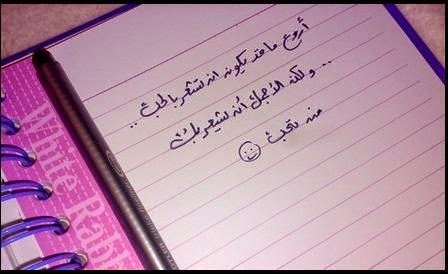 أروع ما قد يكون ان تشعر بالحب ..
.. ولكن الاجمل أن يشعر بك
من تحب ☺
White Rab